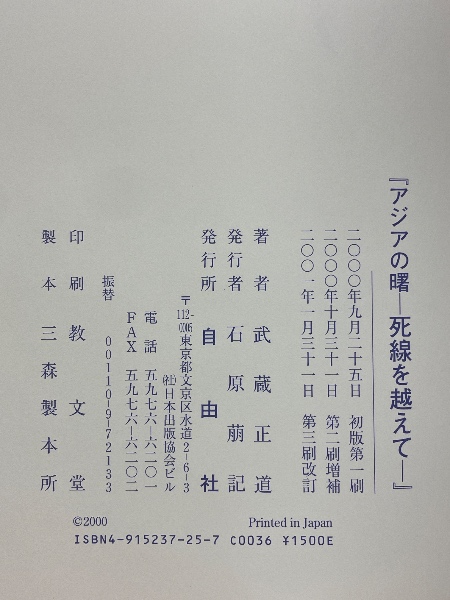 『アジアの曙―死線を越えて―』
二〇〇〇年九月二十五日 初版第一刷
二〇〇〇年十月三十一日 第二刷増補
二〇〇一年一月三十一日 第三刷改訂
著者 武蔵正道
発行者 石原萠記
発行所 自由社
〒112-0005 東京都文京区水道2-6-3
㈳日本出版協会ビル
電話 五九七六―六二〇一
FAX 五九七六―六二〇二
振替 00110-9-72133
印刷 教文堂
製本 三森製本所
©2000 Printed in Japan
ISBN4-915237-25-7 C0036 ¥1500E